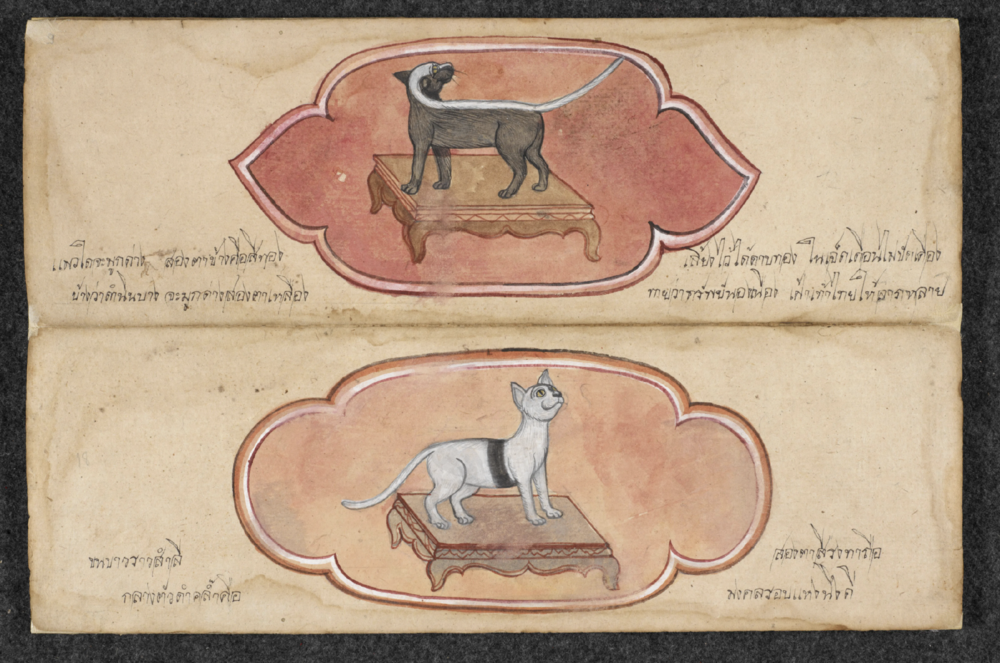 แมวใดจะมูกด่าง สองตาข้างคือสีทอง
เลี้ยงไว้ได้ดาบทอง ในเจ็ดเดือนไม่ขัดเคือง
บ้างวาดำนินบาง จะมูกดางสองตาเหลือง
ทายวาทรัพย์นองเนือง เจ้าเท้าไทยให้ลาภหลาย
ขนขาวราวสำลี
สองตาสีรงทาถือ
กลางตัวดำคล้ำคือ
มงคลรอบ